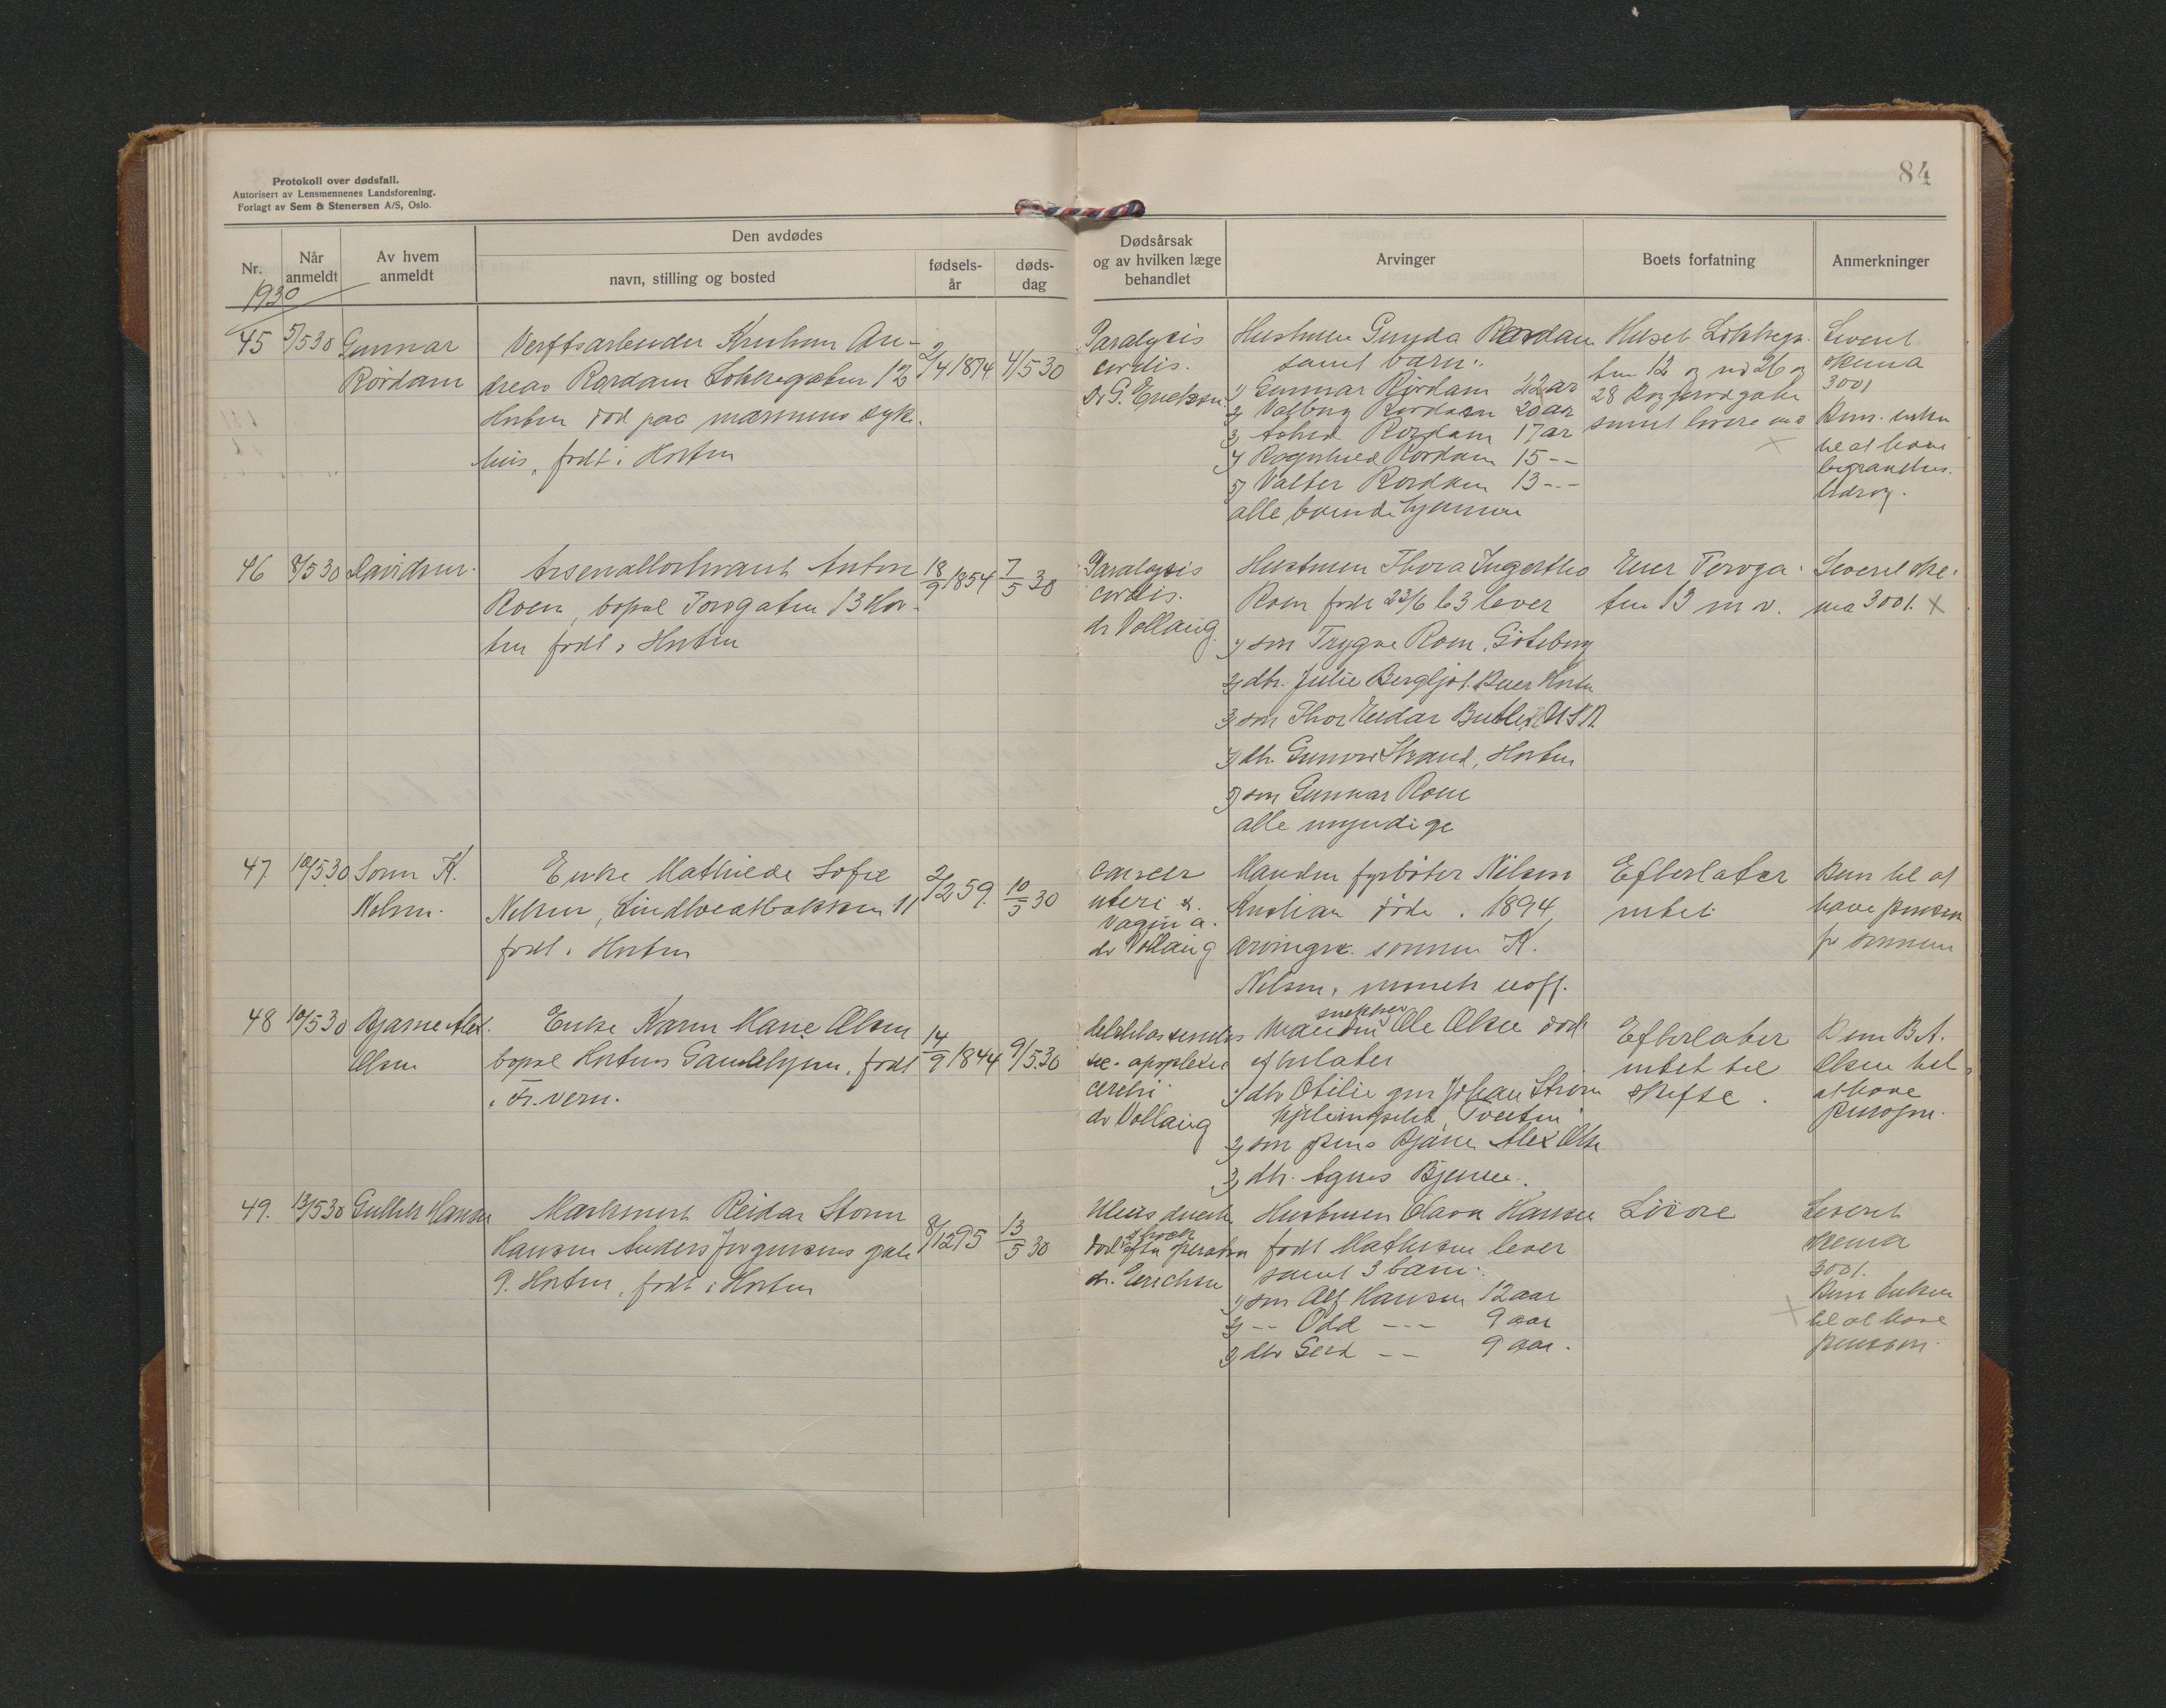 Protokoll over dødsfall.
Autorisert av Lensmennenes Landsforening.
Forlagt av Sem & Stenersen A/S, Oslo.
84
Nr.
Når anmeldt
Av hvem anmeldt
Den avdødes
navn, stilling og bosted
fødsels-
år
døds-
dag
Dødsårsak
og av hvilken læge
behandlet
Arvinger
Boets forfatning
Anmerkninger
1930
45 5/5 30 Gunnar
Rördam
Verftsarbeider Kristian An-
dreas Rördam Lökkegaten 12
Horten död paa marinens syke-
hus, födt i Horten
2/4 1874 4/5 30
Paralysis
cordis.
Dr G. Erichsen
Hustruen Gunda Rördam
samt barn:
1) Gunnar Rördam 22 aar
2) Valborg Rördam 20 aar
3) Astrid Rördam 17 aar
4) Rognhild Rördam 15 - -
5) Valter Rördam 13 - - -
alle boende hjemme
Huset Lökkega-
ten 12 og nr 26 og
28
samt lösöre m v
Leveret
skema
3001
Rens. enken
til at have
begravelses-
bidrag.
46 8/5 30 Davidsen.
Arsenalformand Anton
Roen, bopæl Torvgaten 13 Hor-
ten födt i Horten
18/9 1854 7/5 30
Paralysis
cordis.
dr Vollaug.
Hustruen Thora Ingertha
Roen född 23/6 63 lever
1) sön Trygve Roen, Göteborg
2) dtr. Julie Bergljot Buer Horten
3) sön Thor Reidar Butler, USA
4) dtr. Gunvor Strand, Horten
5) sön Gunnar Roen
alle myndige
Eier Torvga-
ten 13 m v.
Leveret ske-
ma 3001. X
47 10/5 30 Sönn K.
Nelsen.
Enke Mathilde Sofie
Nelsen, Lindtveatbakken 11
födt i Horten
2/2 59. 10/5 30
Cancer
uteri &
vagina.
dr Vollaug
Manden fyrböter Nilsen
Kristian döde i 1894,
arving er sönnen K.
Nelsen, mineb uoff.
Efterlater
intet
til at
have pension
fr sönnen
48 10/5 30 Bjarne Alex.
Olsen
Enke Karen Marie Olsen
bopæl Hortens Gamlehjem, födt
i Fr.vern.
14/9 1844 9/5 30
apoplexia
cerebri
dr Vollaug
snekker
Manden Ole Olsen död
efterlater
1) dtr Otilie gm Johan Ström
2) sön Bjarne Alex Olsen
3) dtr. Agnes Bjerma.
Efterlater
intet til
skifte.
B.A.
Olsen til
at have
pension.
49. 13/5 30 Gullik Hansen
Maskinist Reidar Storm
Hansen Anders Jörgensens gate
9. Horten, födt i Horten
8/12 95 13/5 30
Ulcus duode
shock
död efter operation
dr. Erichsen
Hustruen Olava Hansen
födt Mathisen lever
samt 3 barn:
1) sön Alf Hansen 12 aar
2) - - Odd - - - 9 aar
3) dtr Gerd - - 9 aar.
Lösöre
Leveret
skema
3001.
enken
til at have
pension.